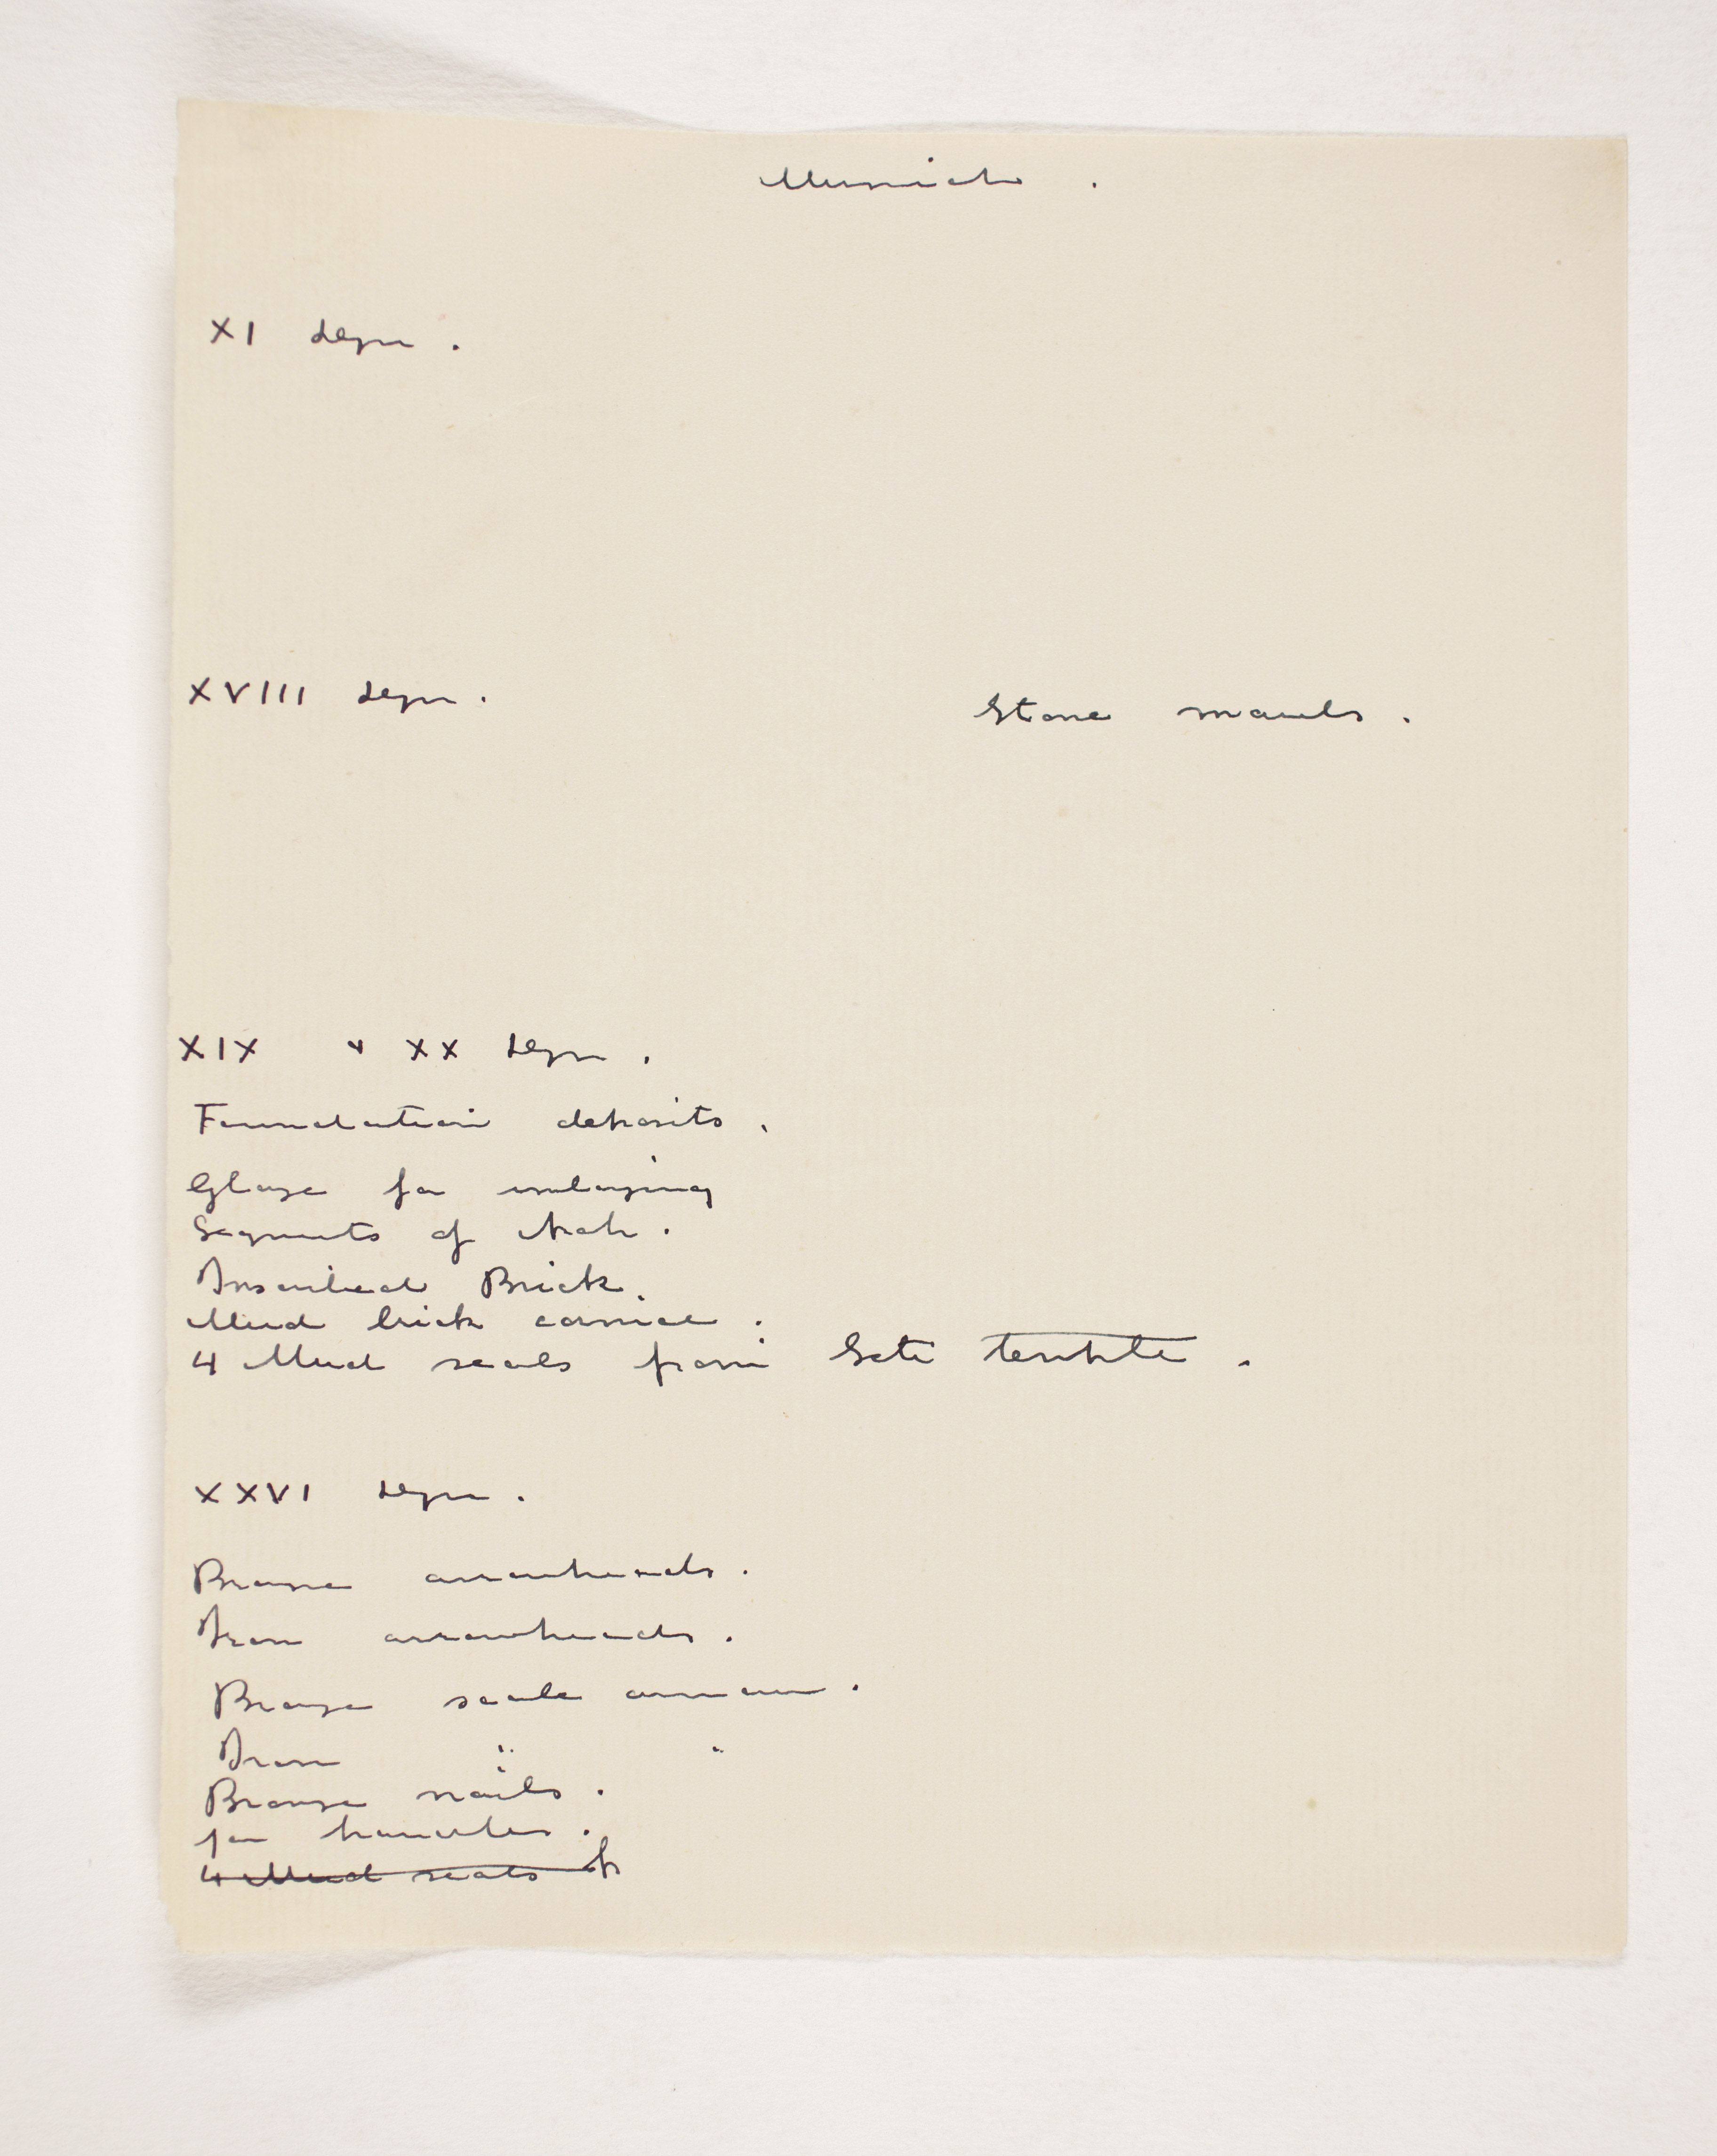 Munich .
XI dyn .
XVIII dyn .
Stone mauls .
XIX + XX dyn .
Foundation deposits .
Glaze for inlaying
Segments of
Inscribed Brick .
Mud brick cornice .
4 Mud seals from Seti temple .
XXVI dyn .
Bronze arrowheads .
Iron arrowheads .
Bronze scale armour .
Iron " "
Bronze nails .
jar handles .
4 Mud seals f